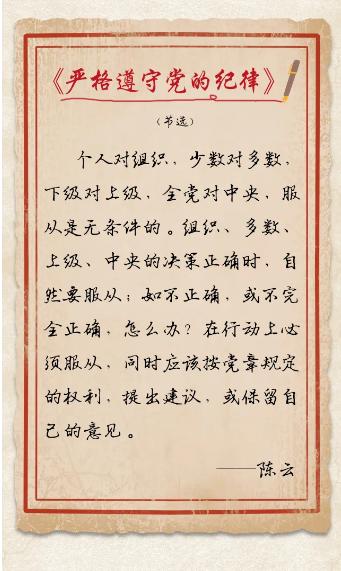 《严格遵守党的纪律》
（节选）
个人对组织，少数对多数，
下级对上级，全党对中央，服
从是无条件的。组织、多数、
上级、中央的决策正确时，自
然要服从；如不正确，或不完
全正确，怎么办？在行动上必
须服从，同时应该按党章规定
的权利，提出建议，或保留自
己的意见。
——陈云